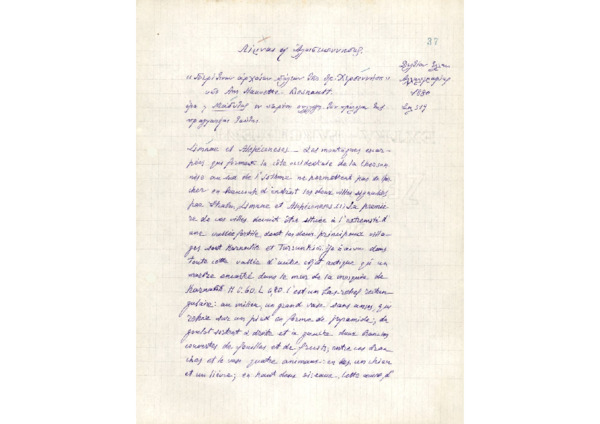 37
Λίμναι κ Ἀλωπεκόννησος.
"Περὶ τῶν ἀρχαίων πόλεων τῆς Θρ. Χερσοννήσου"
ὑπὸ Am Hauvette - Besnault.
Δελτίον Ἑλλην.
Ἀλληλογραφίας
1880
Σελ 517
Limnæ et Alopéconèse - Les montagnes escar-
pées, qui forment la côte occidentale de la Cherson-
nèse au sud de l'isthme ne permettent pas de cher-
cher en beaucoup d'endroit les deux villes signalées
par Strabon, Limnæ et Alopéconèse. La premiè-
re de ces villes devait être située à l'extrémité d'
une vallée fertile, dont les deux principaux villa-
ges sont Karnabile et Tursunkiöi. Je n'ai vu dans
toute cette vallée d'autre objet antique qu'un
marbre encastré dans le mur de la mosquée de
Karnabile. H. 0.60. L. 0,90. C'est un bas-relief rectan-
gulaire: au milieu, un grand vase sans anses, qui
repose sur un pied en forme de pyramide; du
goulot sortent à droite et à gauche deux branches
couvertes de feuilles et de fruits; entre ces bran-
ches et le vase quatre animaux: en bas, un chien
et un lièvre; en haut deux oiseaux. Cette